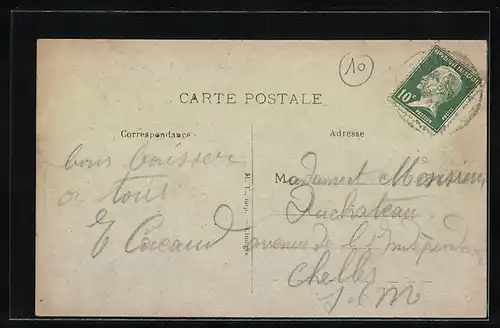 10
REPUBLIQUE FRANÇAISE
10c
PASTEUR
POSTES
CARTE POSTALE
Correspondance
Adresse
bons baisser
a tous
Madame et Monsieur
Duchateau
avenue de l'Independan
Chelles
S et M